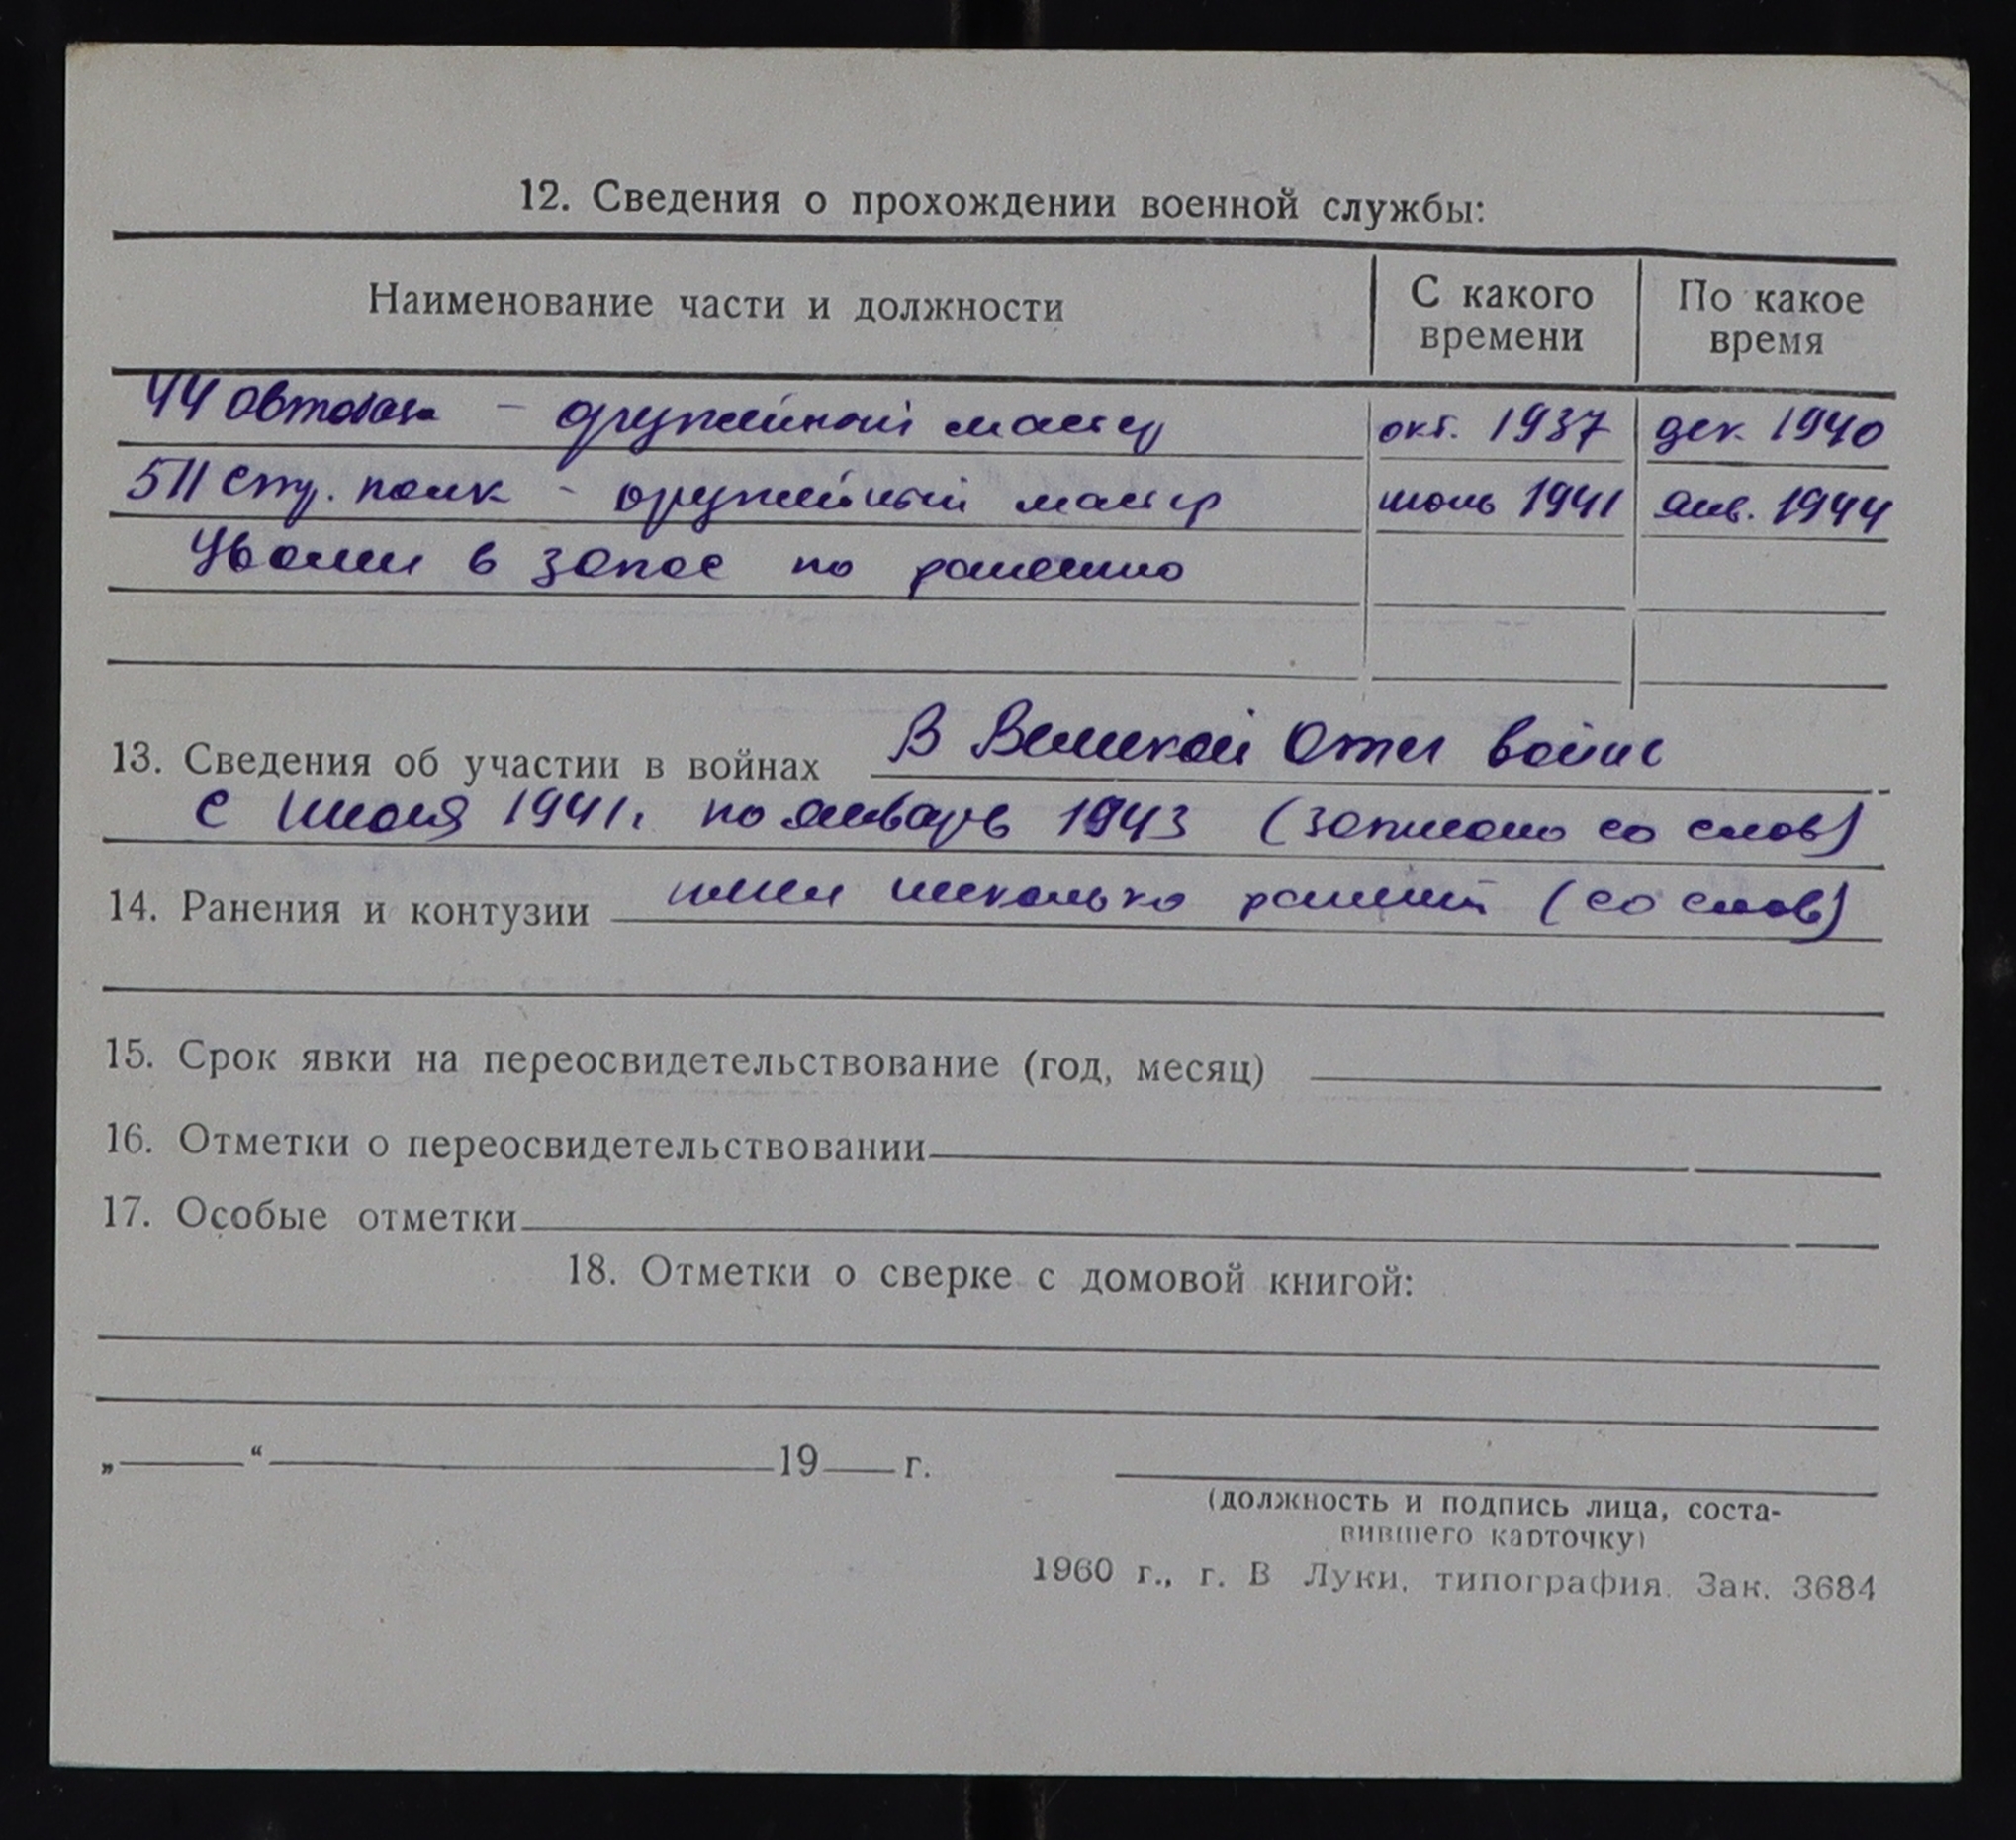 12. Сведения о прохождении военной службы:
Наименование части и должности
С какого времени
По какое время
44 автобаза - оружейный мастер окт. 1937 дек. 1940
511 стр. полк - оружейный мастер июль 1941 янв. 1944
Уволен в запас по ранению
13. Сведения об участии в войнах В Великой Отеч войне
с июля 1941г. по январь 1943 (записано со слов)
14. Ранения и контузии имел несколько ранений (со слов)
15. Срок явки на переосвидетельствование (год, месяц)
16. Отметки о переосвидетельствовании
17. Особые отметки
18. Отметки о сверке с домовой книгой:
„ “ 19 г.
(должность и подпись лица, соста-
вившего карточку)
1960 г., г. В Луки, типография. Зак. 3684